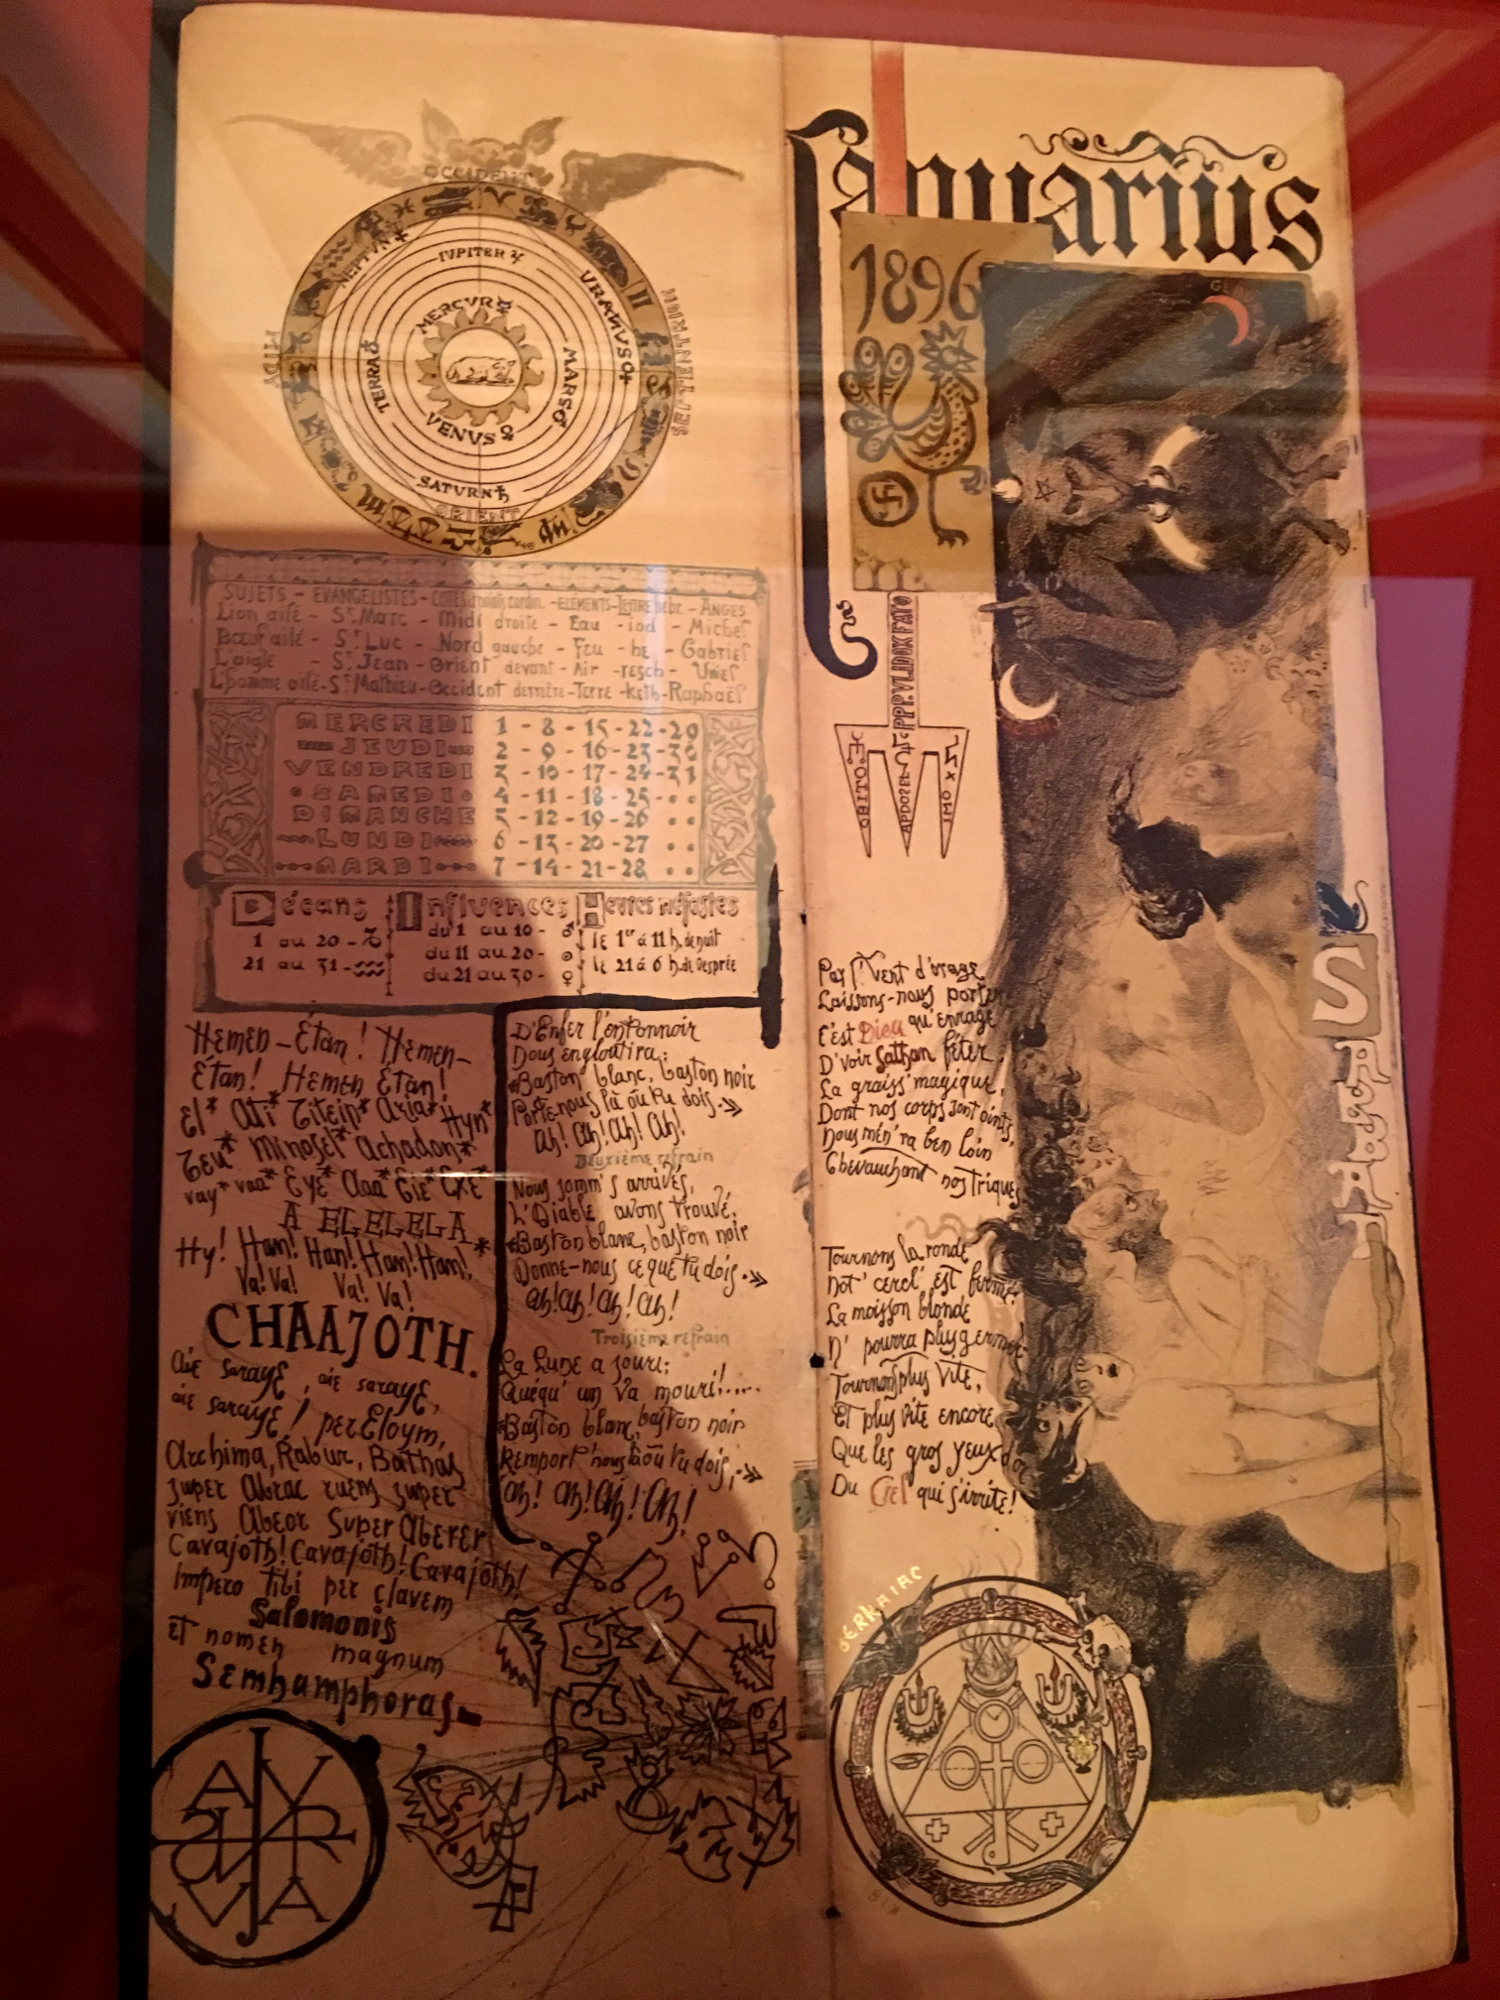 OCCIDENT
NEPTVN
IVPITER ♃
VRANVS
MERCVR ☿
MARS ♂
TERRA
VENVS ♀
SATVRN ♄
ORIENT
MIDY
SEPTENTRION
SUJETS - EVANGELISTES - COTES points cardin. - ELÉMENTS - LETTRE hébr. - ANGES
Lion ailé - St. Marc - Midi droite - Eau - iod - Michel
Bœuf ailé - St. Luc - Nord gauche - Feu - he - Gabriel
L'aigle - St. Jean - Orient devant - Air - resch - Uriel
L'homme ailé - St. Mathieu - Occident derrière - Terre - keth - Raphaël
MERCREDI 1 - 8 - 15 - 22 - 29
JEUDI 2 - 9 - 16 - 23 - 30
VENDREDI 3 - 10 - 17 - 24 - 31
SAMEDI 4 - 11 - 18 - 25
DIMANCHE 5 - 12 - 19 - 26
LUNDI 6 - 13 - 20 - 27
MARDI 7 - 14 - 21 - 28
Décans Influences Heures néfastes
1 au 20 - ♑ du 1 au 10 - ♂ le 1er à 11 h. de nuit
21 au 31 - ♒ du 11 au 20 - ☉ le 21 à 6 h. de vesprée
du 21 au 30 - ♀
Hemen-Étan! Hemen-
Étan! Hemen Étan!
El* Ati* Titeip* Aria* Hyn*
Teu* Minosel* Achadon*
vay* vaa* Eye* Aaa* Eie* Exe*
A ELELELA*
Hy! Han! Han! Ham! Ham!
Va! Va! Va! Va!
CHAAJOTH.
aie saraye, aie saraye,
aie saraye! per Eloym,
Archima, Rabur, Bathas
super Abrac ruens super
viens Abeor Super Aberer
Cavajoth! Cavajoth! Cavajoth!
impero tibi per clavem
Salomonis
et nomen magnum
Semhamphoras
D'Enfer l'entonnoir
Nous engloutira:
«Baston blanc, baston noir
Porte-nous là où tu dois.»
Ah! Ah! Ah! Ah!
Deuxième refrain
Nous somm's arrivés,
L'Diable avons trouvé.
«Baston blanc, baston noir
Donne-nous ce que tu dois.»
Ah! Ah! Ah! Ah!
Troisième refrain
La Lune a souri:
Quéqu' un va mouri!....
«Baston blanc, baston noir
Remport' nous là où tu dois.»
Ah! Ah! Ah! Ah!
Ianuarius
1896
PPP.VLIDOXFATO
E.OTTIBO
APDOSEL
Par l'vent d'orage
Laissons-nous porter
C'est Dieu qu'enrage
D'voir Sathan fêter.
La graiss' magique,
Dont nos corps sont oints,
Nous mén'ra ben loin
Chevauchant nos triques
Tournons la ronde
Not' cercl' est fermé.
La moisson blonde
N' pourra plus germer.
Tournons plus vite,
Et plus vite encore,
Que les gros yeux d'or
Du Ciel qui s'irrite!